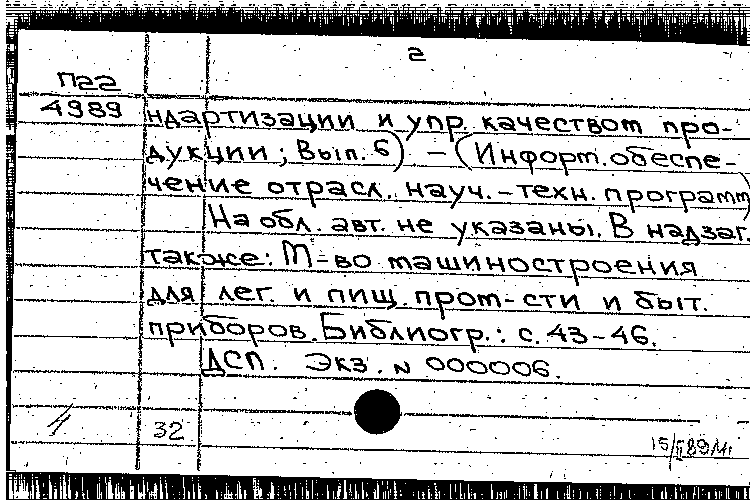 2
П22
4989
ндартизации и упр. качеством про-
дукции; Вып. 6) – (Информ. обеспе-
чение отрасл. науч.-техн. программ)
На обл. авт. не указаны. В надзаг.
также: М-во машиностроения
для лег. и пищ. пром-сти и быт.
приборов. Библиогр.: с. 43-46.
ДСП. Экз. № 000006.
32